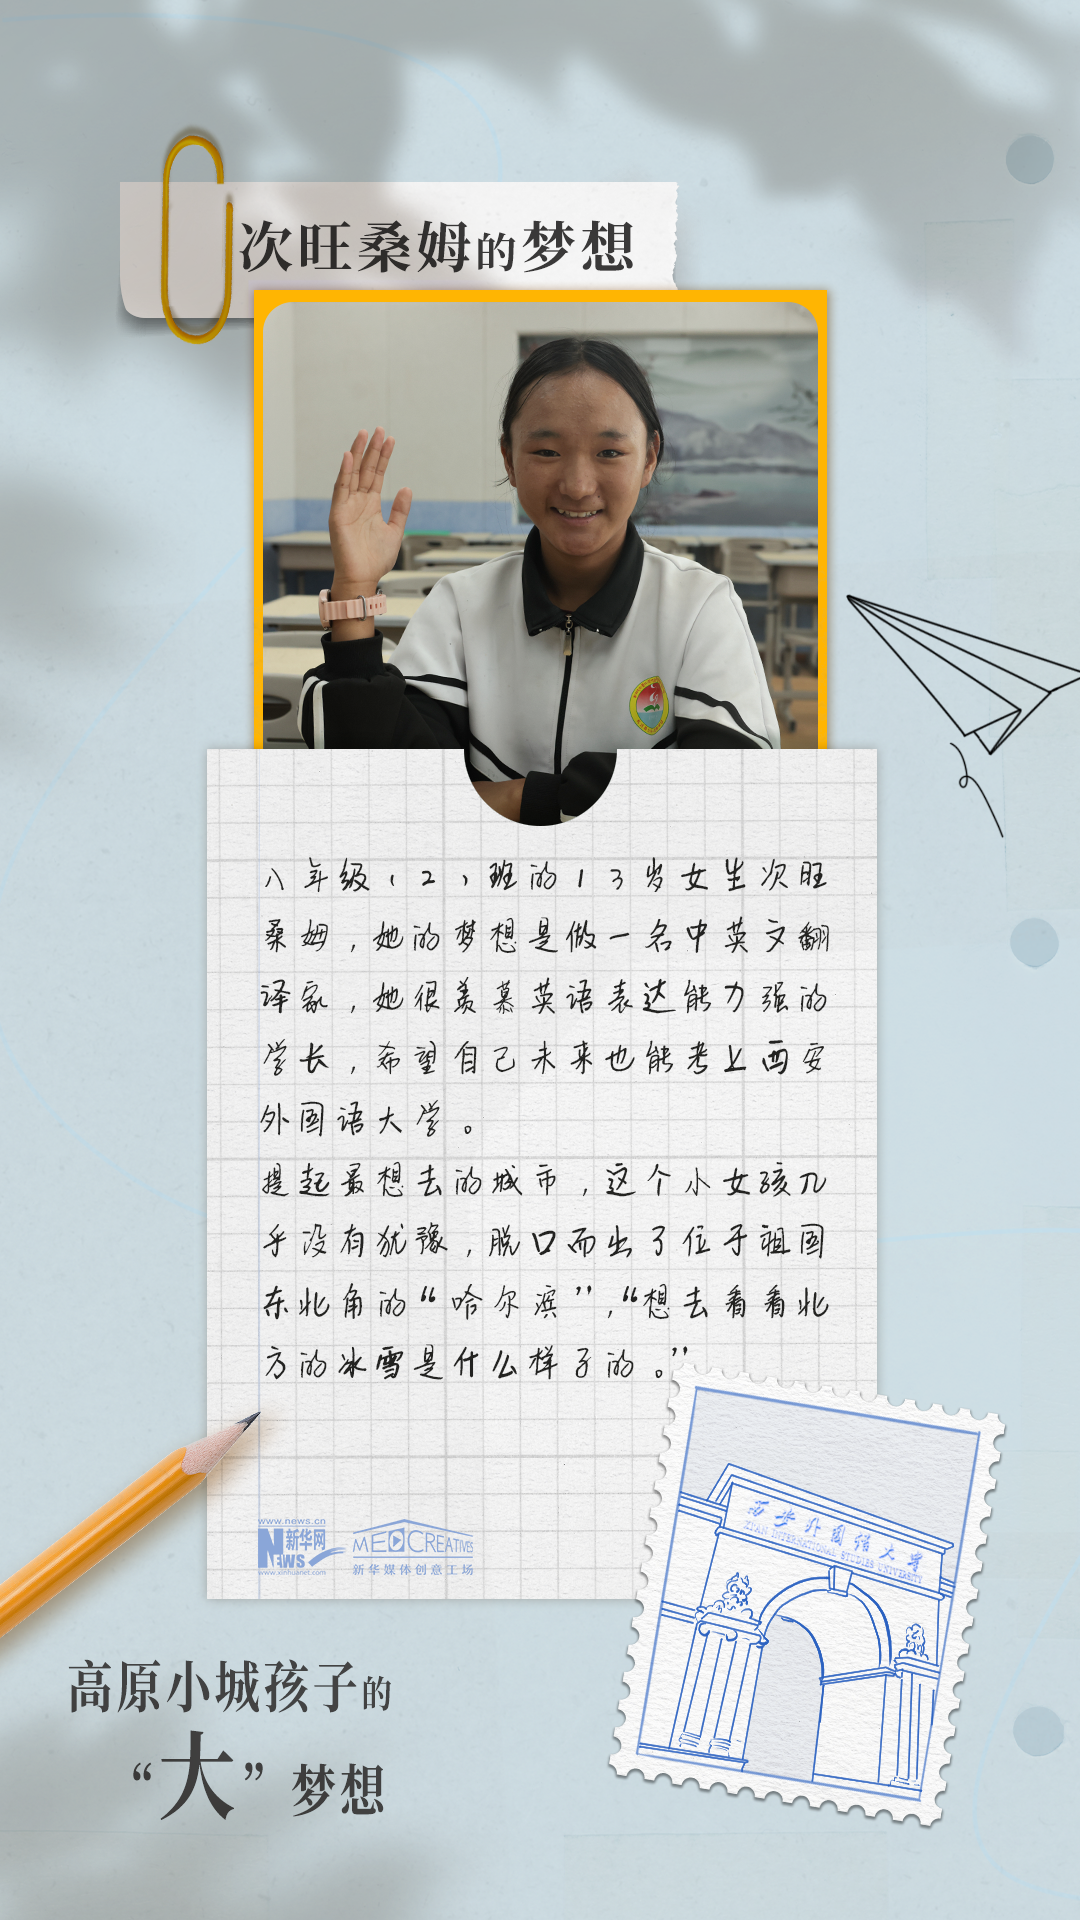 次旺桑姆的梦想
八年级（2）班的13岁女生次旺
桑姆，她的梦想是做一名中英文翻
译家，她很羡慕英语表达能力强的
学长，希望自己未来也能考上西安
外国语大学。
提起最想去的城市，这个小女孩几
乎没有犹豫，脱口而出了位于祖国
东北角的“哈尔滨”，“想去看看北
方的冰雪是什么样子的。”
西安外国语大学
XI'AN INTERNATIONAL STUDIES UNIVERSITY
www.news.cn
新华网
NEWS
www.xinhuanet.com
MEDCREATIVES
新华媒体创意工场
高原小城孩子的
“大”梦想